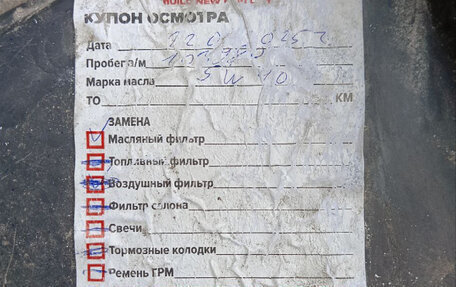 КУПОН ОСМОТРА
Дата
Пробег а/м
Марка масла 5W40
ТО КМ
ЗАМЕНА
Масляный фильтр
Топливный фильтр
Воздушный фильтр
Фильтр салона
Свечи
Тормозные колодки
Ремень ГРМ